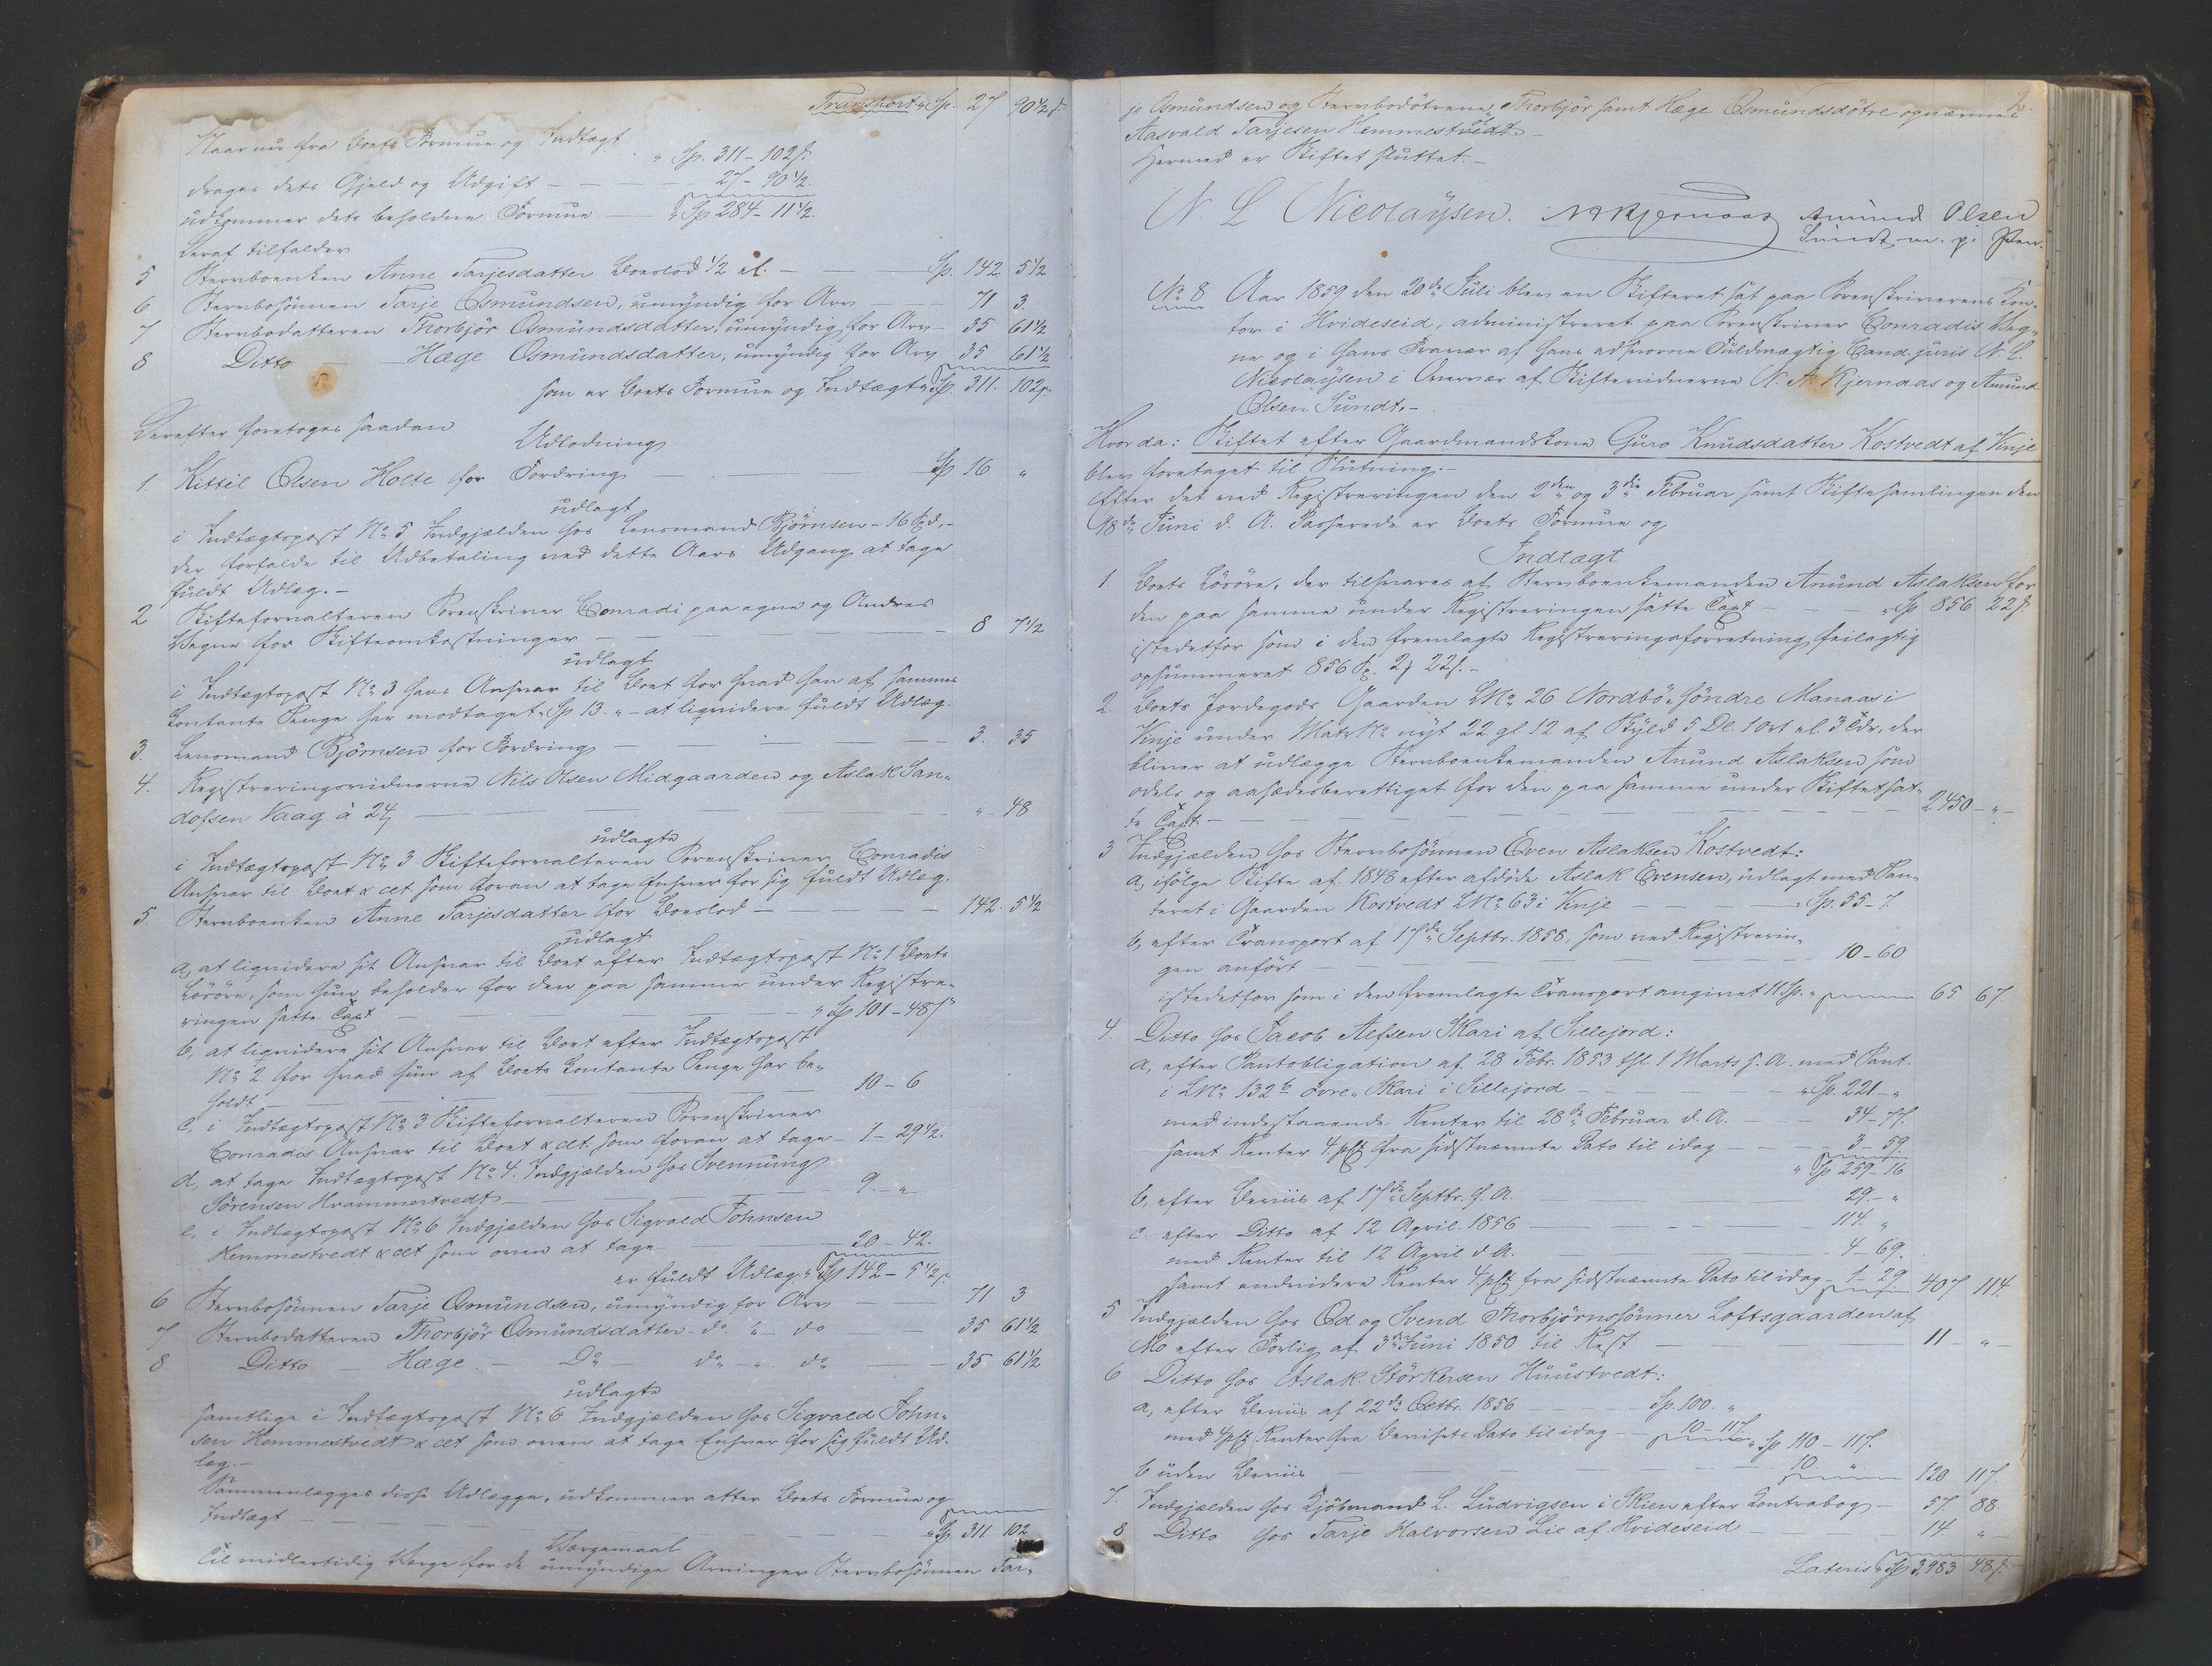 Transport " Sp. 27 90 1/2 s.
Naar nu fra Boets Formue og Indtægt
" Sp. 311 - 102 s.
drages dets Gjeld og Udgift - - - 27 - 90 1/2.
udkommer dets beholdne Formue - " Sp 284 - 11 1/2.
Deraf tilfalder
5 Stervboenken Anne Tarjesdatter Boeslod 1/2 el. - Sp. 142. 5 1/2
6 Stervbosönnen Tarje Osmundsen, umyndig for Arv - 71 3
7 Stervbodatteren Thorbjör Osmundsdatter, umyndig for Arv - 35 61 1/2
8 Ditto - Hæge Osmundsdatter, umyndig for Arv 35 61 1/2
som er Boets Formue og Indtægt " Sp. 311. 102 s.
Derefter foretoges saadan
Udlodning
1. Kittil Olsen Holte for Fordring - Sp 16 "
udlagt
i Indtægtspost No 5 Indgjælden hos Lensmand Björnsen - 16 Spd, -
der forfalde til Udbetaling ved dette Aars Udgang at tage
fuldt Udlæg. -
2 Skifteforvalteren Sorenskriver Conradi paa egne og Andres
Vegne for Skifteomkostninger - 8 7 1/2
udlagt
i Indtægtspost No 3 hans Ansvar til Boet for hvad han af sammes
Contante Penge har modtaget " Sp 13. " - at liqvidere fuldt Udlæg.
3. Lensmand Björnsen for Fordring - 3. 35
4. Registreringsvidnerne Nils Olsen Midgaarden og Aslak San-
dofsen Vaag à 24 s - " - 48
udlagte
i Indtægtspost No 3 Skifteforvalteren Sorenskriver Conradis
Ansvar til Boet & ct. som foran at tage Enhver for sig fuldt Udlæg.
5. Stervboenken Anne Tarjesdatter for Boeslod - 142. 5 1/2
udlagt
a, at liqvidere sit Ansvar til Boet efter Indtægtspost No 1 Boets
Lösöre, som hun beholder for den paa samme under Registre-
ringen satte Taxt - " Sp 101 - 48 s
b, at liqvidere sit Ansvar til Boet efter Indtægtspost
No 2 for hvad hun af Boets Contante Penge har be-
holdt - 10 - 6
c, i Indtægtspost No 3 Skifteforvalteren Sorenskriver
Conradis Ansvar til Boet & ct. som foran at tage - 1 - 29 1/2.
d, at tage Indtægtspost No 4. Indgjælden hos Svennung
Sörensen Hvammertvedt - 9. - "
e, i Indtægtspost No 6 Indgjælden hos Sigvald Johnsen
Hemmestvedt & ct som oven at tage - 20 - 42.
er fuldt Udlæg " Sp 142 - 5 1/2 s.
6 Stervbosönnen Tarje Osmundsen, umyndig for Arv - 71 3
7 Stervbodatteren Thorbjör Osmundsdatter - do " - do - 35 61 1/2
8. Ditto - Hæge - Do - do - " - do - 35 61 1/2
udlagte
samtlige i Indtægtspost No 6 Indgjælden hos Sigvald John-
sen Hemmestvedt & ct som oven at tage Enhver for sig fuldt Ud-
læg. -
Sammenlægges disse Udlægge, udkommer atter Boets Formue og
Indtægt - " Sp 311 102
Værgemaal
Til midlertidig Værge for de umyndige Arvinger Stervbosönnen Tar-
9.
je Osmundsen og Stervbodötrene Thorbjör samt Hæge Osmundsdötre opnævnes
Aasvald Tarjesen Hemmestvedt. -
Hermed er Skiftet sluttet. -
N. L. Nicolaÿsen. N A Kjernaas Amund Olsen
Sundt m. p. Pen.
No 8 Aar 1859 den 20de Juli blev en Skifteret sat paa Sorenskriverens Kon-
tor i Hvideseid, administreret paa Sorenskriver Conradis Veg-
ne og i hans Fravær af hans edsvorne Fuldmægtig Cand. juris N. L.
Nicolaÿsen i Overvær af Skiftevidnerne N. A. Kjernaas og Amund
Olsen Sundt. -
Hvor da: Skiftet efter Gaardmandskone Guro Knudsdatter Kostvedt af Vinje
blev foretaget til Slutning. -
Efter det ved Registreringen den 2den og 3die Februar samt Skiftesamlingen den
18de Juni d. A. Passerede er Boets Formue og
Indtægt
1. Boets Lösöre, der tilsvares af Stervboenkemanden Anund Aslaksen for
den paa samme under Registreringen satte Taxt - " Sp 856 22 s.
istedetfor som i den fremlagte Registreringsforretning feilagtig
opsummeret 856 Sp. 2 22 s. -
2. Boets Jordegods Gaarden LNo 26 Nordbö söndre Manaas i
Vinje under Matr No nÿt 22 gl. 12 af Skÿld 5 Dl. 1 ort el. 3 Tdr, der
bliver at udlægge Stervboenkemanden Anund Aslaksen som
odels og aasædesberettiget for den paa samme under Skiftet sat-
te Taxt. - 2450 - " -
3 Indgjælden hos Stervbosönnen Even Aslaksen Kostvedt:
a, ifölge Skifte af 1848 efter afdöde Aslak Evensen, udlagt med Pan-
teret i Gaarden Kostvedt LNo 63 i Vinje - " Sp. 55 - 7.
b, efter Transport af 17de Septbr. 1858. som ved Registrerin-
gen anfört - 10 - 60
istedetfor som i den fremlagte Transport angivet 11 Sp. " 65 67
4. Ditto hos Jacob Alfsen Skari af Sillejord:
a, efter Pantobligation af 28 Febr. 1853 thl. 1 Marts s. A. med Pant.
i LNo 132b övre Skari i Sillejord - " Sp. 221 - "
med indestaaende Renter til 28de Februar d. A. - 34 - 77.
samt Renter 4 pCt fra sidstnævnte Dato til idag - 3 - 59.
" Sp 259 - 16
b, efter Beviis af 17de Septbr. f. A. - 29. - "
c. efter Ditto af 12 April. 1856 - 114. "
med Renter til 12 April d. A. - 4 - 69.
samt endvidere Renter 4 pCt fra sidstnævnte Dato til idag - 1 - 29 407 114.
5 Indgjælden hos Od og Svend Thorbjörnssönner Loftsgaarden af
Mo efter Forlig af 3die Juni 1850 til Rest - 11 - " -
6 Ditto hos Aslak Störkersen Huustvedt:
a, efter Beviis af 22de Octbr. 1856 - Sp. 100. "
med 4 pCt Renter fra Bevisets Dato til idag - 10 - 117. " Sp 110 - 117.
b uden Beviis - 10. " 120 117.
7. Indgjælden hos Kjöbmand L. Ludvigsen i Skien efter Contrabog - 57 88.
8 Ditto hos Tarje Halvorsen Lie af Hvideseid - 14 " -
Lateris " Sp 3,983 48 s.